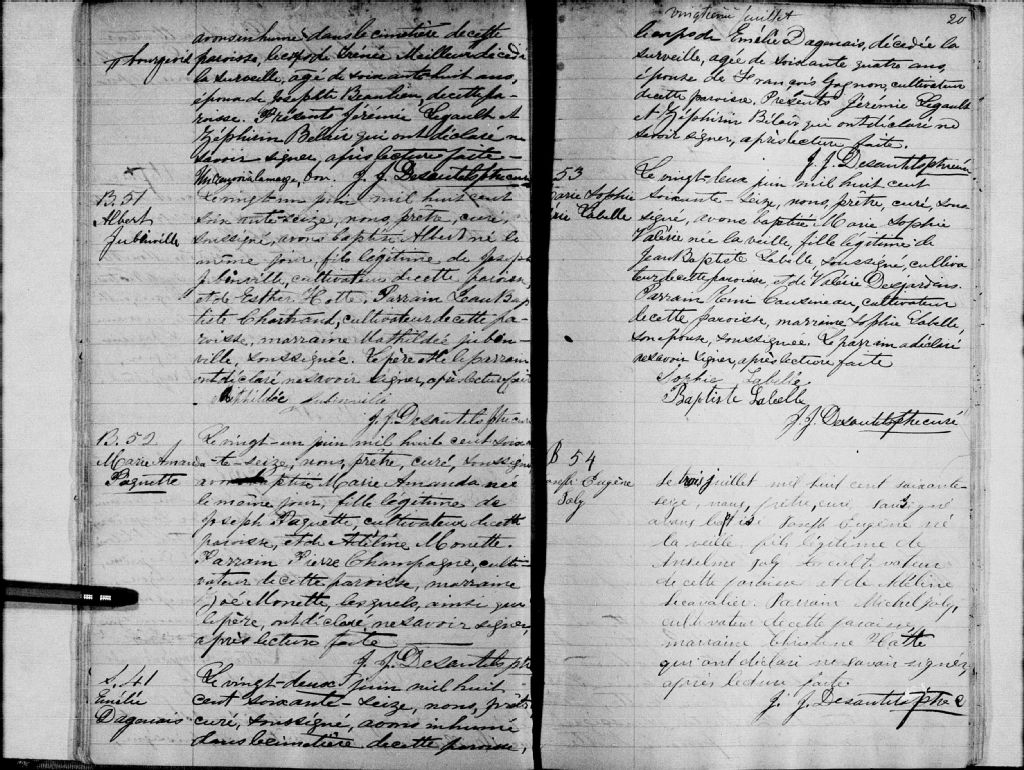 avons inhumé dans le cimetière de cette
+ bourgeois
paroisse, le corps de Irénée Meilleur décédé
la surveille, agé de soixante huit ans,
époux de Josephte Beaulieu, de cette pa-
roisse. Présents Jérémie Legault et
Zéphirin Belair qui ont déclaré ne
savoir signer, après lecture faite –
Un renvoi la marge, bon. J. J. Desautels ptre curé
B. 51
Albert
Jubinville
Le vingt-un juin mil huit cent
soixante-seize, nous, prêtre, curé,
soussigné, avons baptisé Albert né le
même jour, fils légitime de Joseph
Jubinville, cultivateur de cette paroisse
et de Esther Hotte. Parrain Jean Bap
tiste Chartrand, cultivateur de cette pa-
roisse, marraine Mathildée Jubin-
ville, soussignée. Le père et le parrain
ont déclaré ne savoir signer, après lecture faite
Mathildée Jubinville
J. J. Desautels ptre curé
B. 52
Marie Amanda
Paquette
Le vingt-un juin mil huit cent soixan
te-seize, nous, prêtre, curé, soussigné
avons baptisé Marie Amanda née
le même jour, fille légitime de
Joseph Paquette, cultivateur de cette
paroisse, et de Adéline Monette.
Parrain Pierre Champagne, culti-
vateur de cette paroisse, marraine
Zoé Monette, lesquels, ainsi que
le père, ont déclaré ne savoir signer,
après lecture faite
J. J. Desautels ptr
S. 41
Emélie
Dagenais
Le vingt-deux juin mil huit
cent soixante-seize, nous, prêtre
curé, soussigné, avons inhumé
dans le cimetière de cette paroisse,
vingtième juillet
20
le corps de Emélie Dagenais, décédée la
surveille, agée de soixante quatre ans,
épouse de François Gagnon, cultivateur
de cette paroisse. Présents Jérémie Legault
et Zéphirin Bélair qui ont déclaré ne
savoir signer, après lecture faite.
J. J. Desautels ptre curé
53
Marie Sophie
Valérie Labelle
Le vingt-deux juin mil huit cent
soixante-seize, nous, prêtre, curé, sous-
signé, avons baptisé Marie Sophie
Valérie née la veille, fille légitime de
Jean Baptiste Labelle soussigné, cultiva
teur de cette paroisse, et de Valérie Desjardins.
Parrain Rémi Cousineau, cultivateur
de cette paroisse, marraine Sophie Labelle,
son épouse, soussignée. Le parrain a déclaré
ne savoir signer, après lecture faite
Sophie Labelle
Baptiste Labelle
J. J. Desautels ptre curé
B 54
Joseph Eugène
Joly
Le trois juillet mil huit cent soixante-
seize, nous, prêtre, curé, soussigné
avons baptisé Joseph Eugène né
la veille, fils légitime de
Anselme Joly cultivateur
de cette paroisse et de Mélina
Lecavalier. Parrain Michel Joly,
cultivateur de cette paroisse,
marraine Christine Hotte
qui ont déclaré ne savoir signer,
après lecture faite
J. J. Desautels ptre c